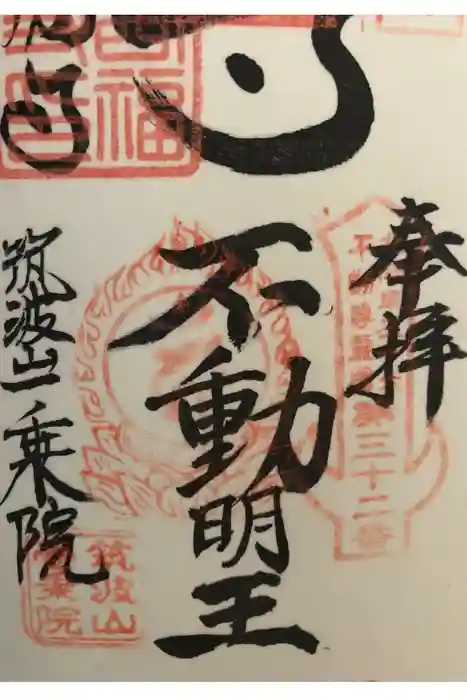 奉拝
不動明王
筑波山一乗院
第三十二番
筑波山
一乗院
福